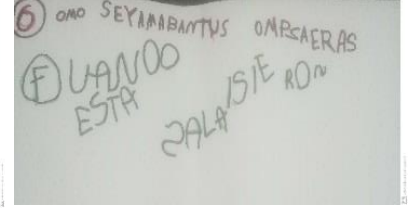 6 OMO SEYAMABANTUS OMPSAERAS
F UANDO
ESTA SALA ISIE RON